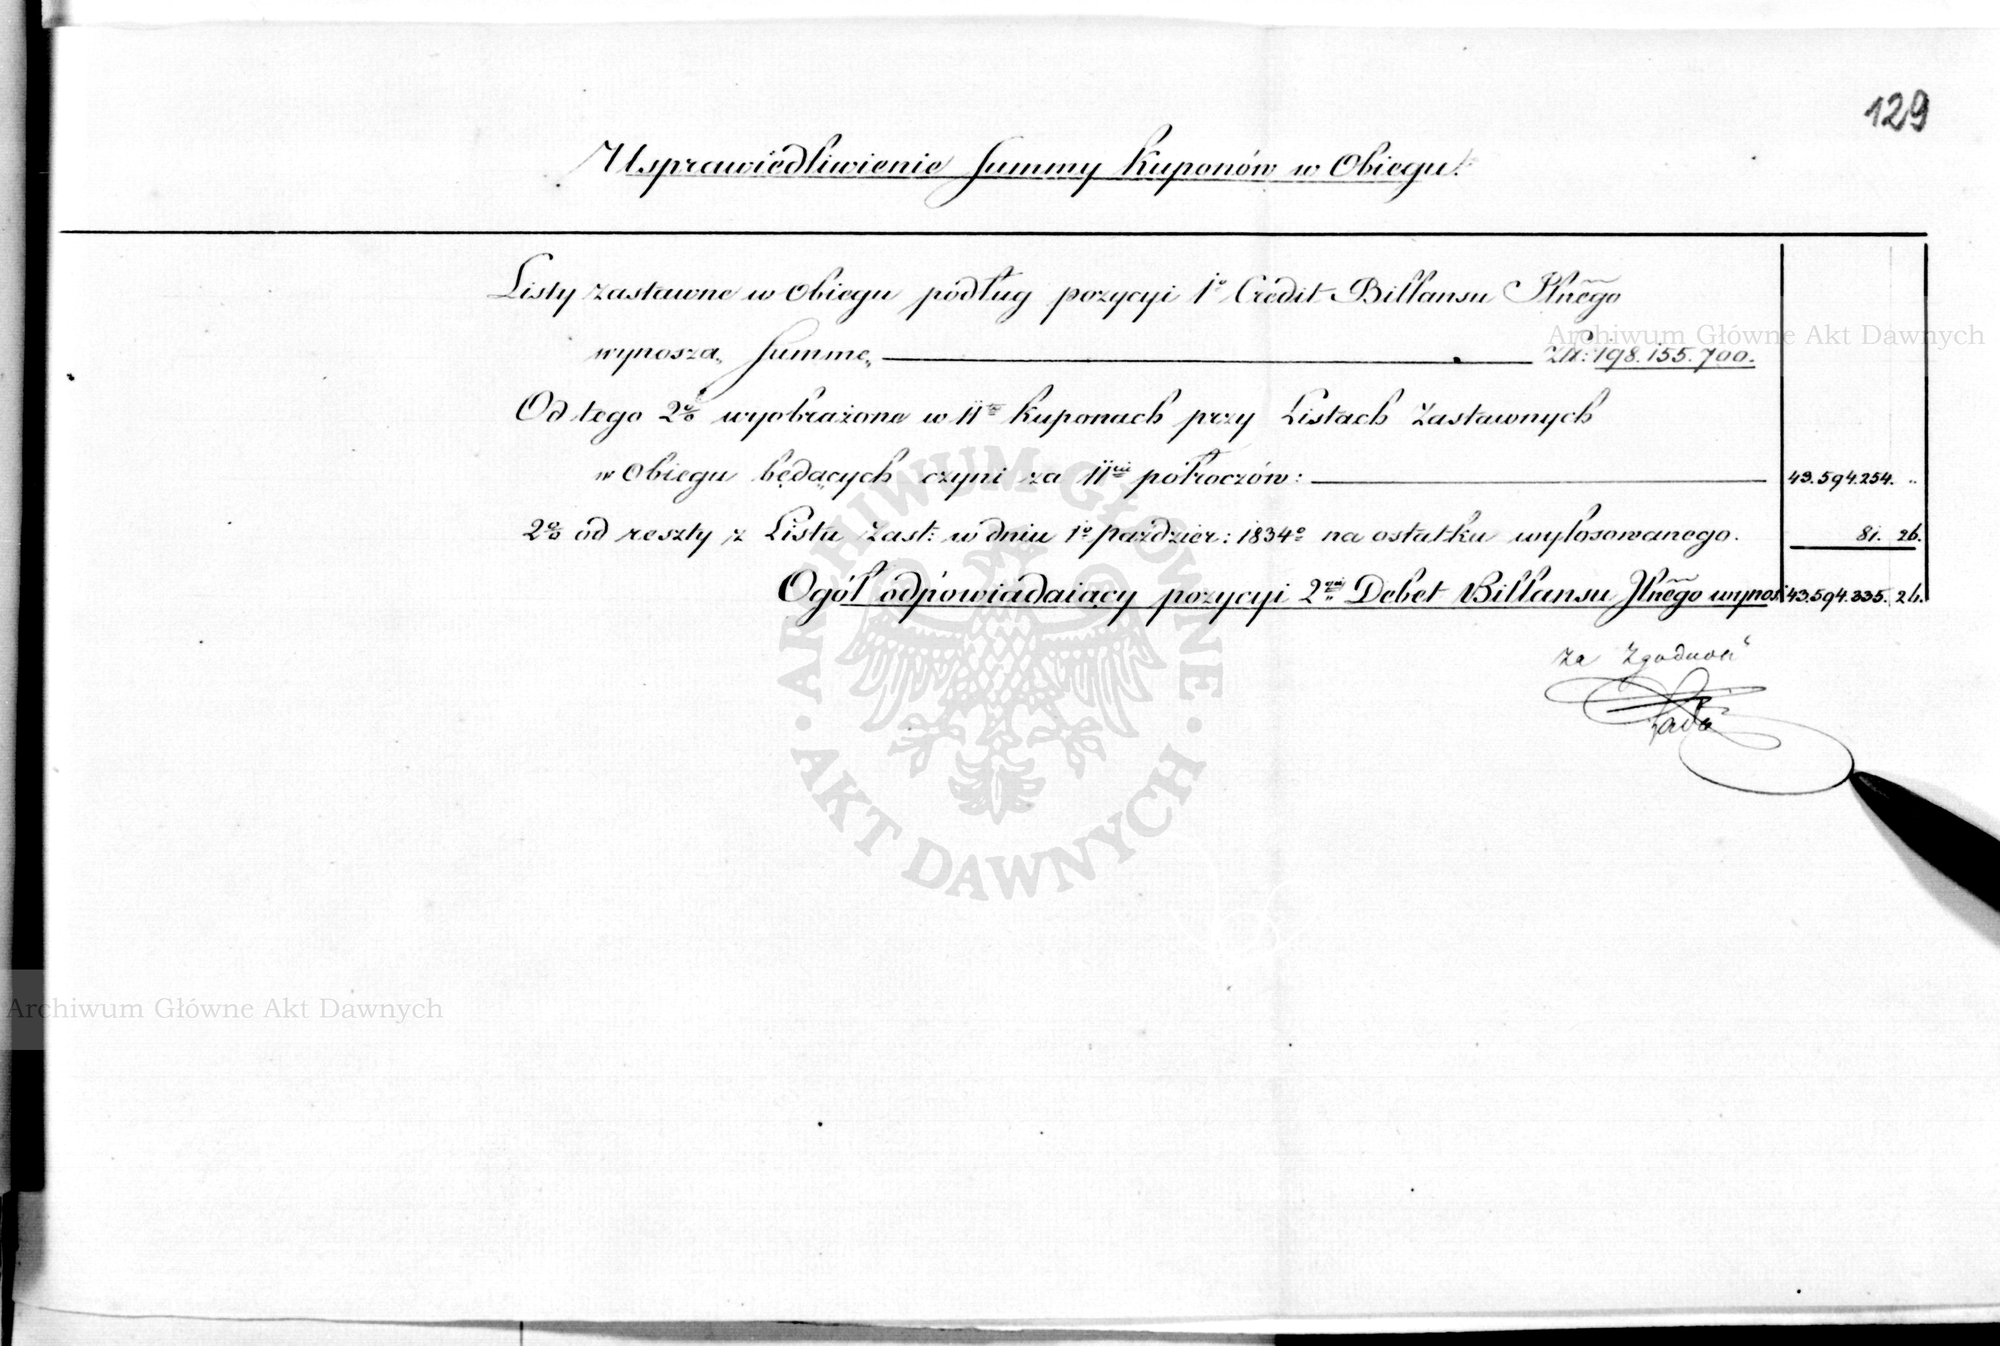 129
Usprawiedliwienie Summy Kuponów w Obiegu.
Listy zastawne w Obiegu podług pozycyi 1º Credit Billansu Płnego
Archiwum Główne Akt Dawnych
wynoszą Summę Złt: 198.155.700.
Od tego 2% wyobrażone w 11tu kuponach przy Listach Zastawnych
w Obiegu będących czyni za 11cie półroczów: 43.594.254. "
2% od reszty z Listu Zast: w dniu 1º Paździer: 1834º na ostatku wylosowanego. 81. 26.
Ogół odpowiadaiący pozycyi 2giéj Debet Billansu Płnego wynosi 43.594.335. 26.
Za Zgodność
ARCHIWUM GŁÓWNE
AKT DAWNYCH
Archiwum Główne Akt Dawnych